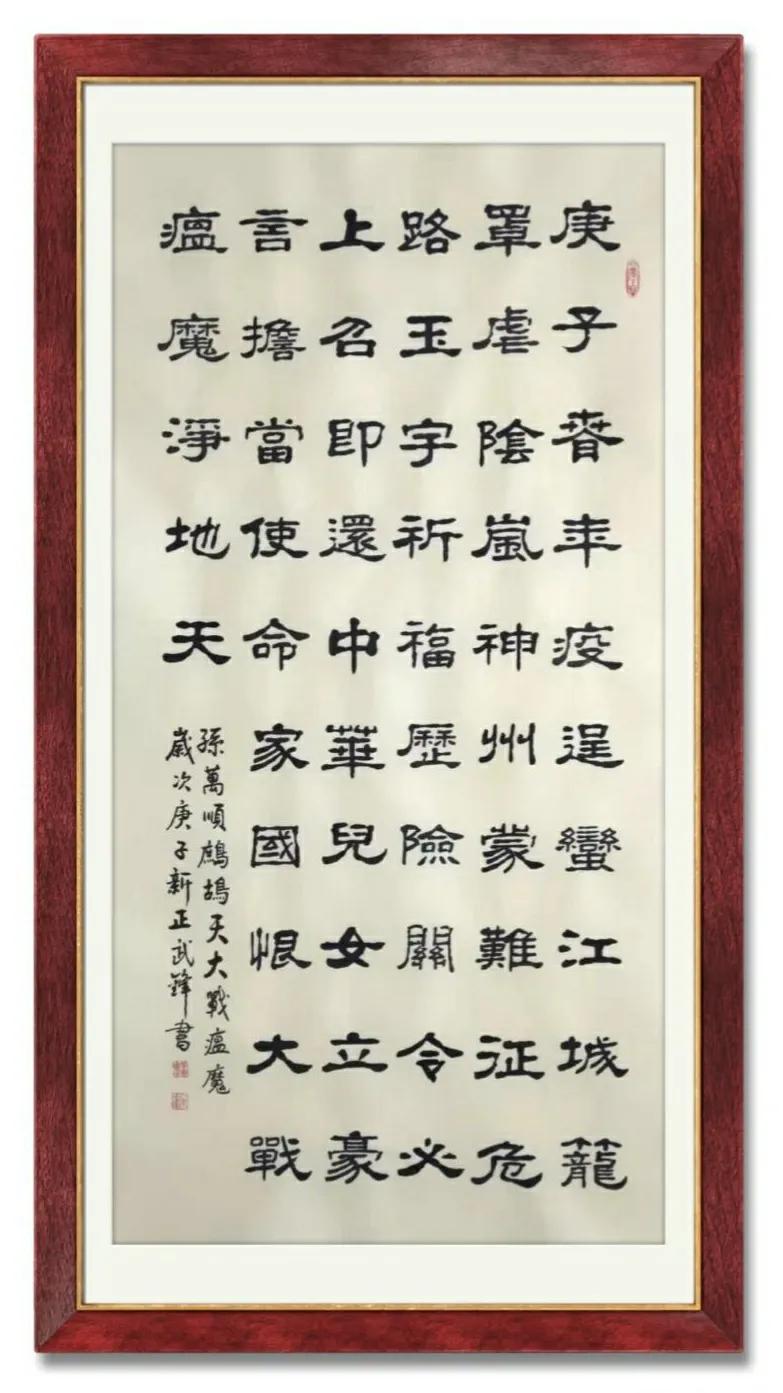 庚子春年疫逞蠻江城籠
罩虐陰嵐神州蒙難征危
路玉宇祈福歷險關令必
上召即還中華兒女立豪
言擔當使命家國恨大戰
瘟魔淨地天
孫萬順鷓鴣天大戰瘟魔
歲次庚子新正武鋒書